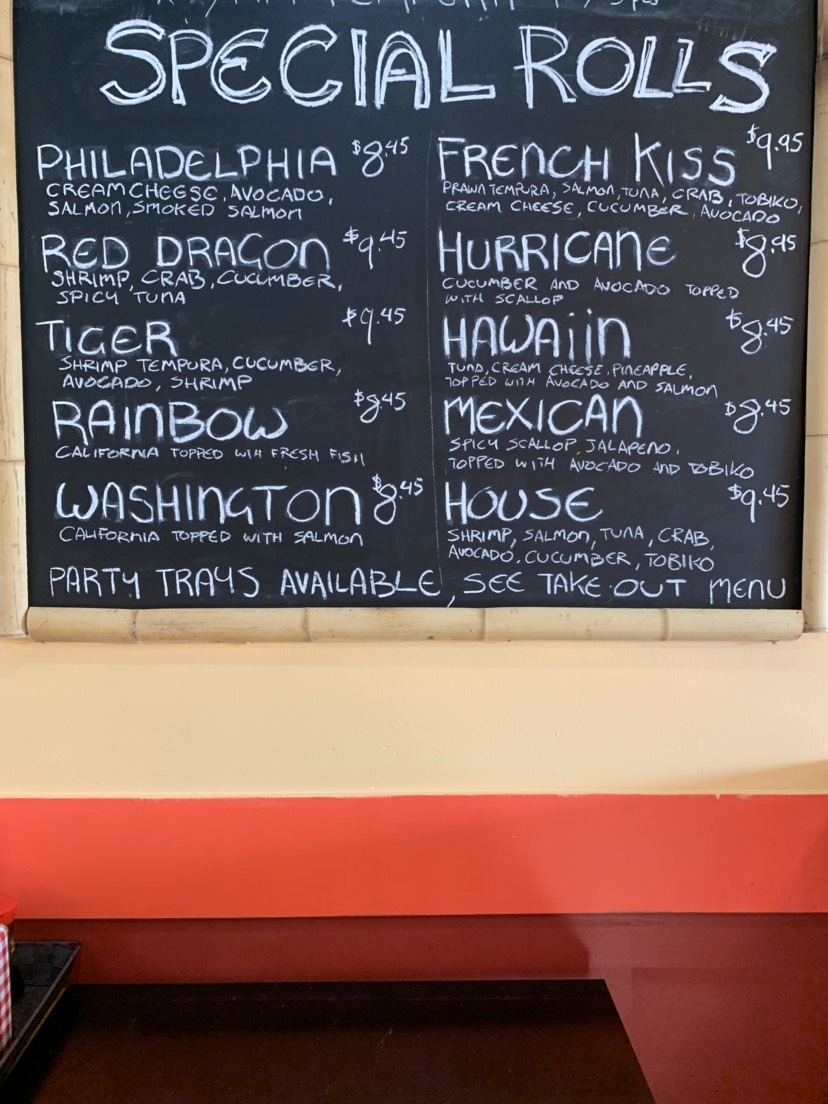 SPECIAL ROLLS
PHILADELPHIA $8.45
CREAM CHEESE, AVOCADO,
SALMON, SMOKED SALMON
RED DRAGON $9.45
SHRIMP, CRAB, CUCUMBER,
SPICY TUNA
TIGER $9.45
SHRIMP TEMPURA, CUCUMBER,
AVOCADO, SHRIMP
RAINBOW $8.45
CALIFORNIA TOPPED WITH FRESH FISH
WASHINGTON $8.45
CALIFORNIA TOPPED WITH SALMON
FRENCH KISS $9.95
PRAWN TEMPURA, SALMON, TUNA, CRAB, TOBIKO,
CREAM CHEESE, CUCUMBER, AVOCADO
HURRICANE $8.95
CUCUMBER AND AVOCADO TOPPED
WITH SCALLOP
HAWAIIN $8.45
TUNA, CREAM CHEESE, PINEAPPLE,
TOPPED WITH AVOCADO AND SALMON
MEXICAN $8.45
SPICY SCALLOP, JALAPENO,
TOPPED WITH AVOCADO AND TOBIKO
HOUSE $9.45
SHRIMP, SALMON, TUNA, CRAB,
AVOCADO, CUCUMBER, TOBIKO
PARTY TRAYS AVAILABLE, SEE TAKE-OUT MENU